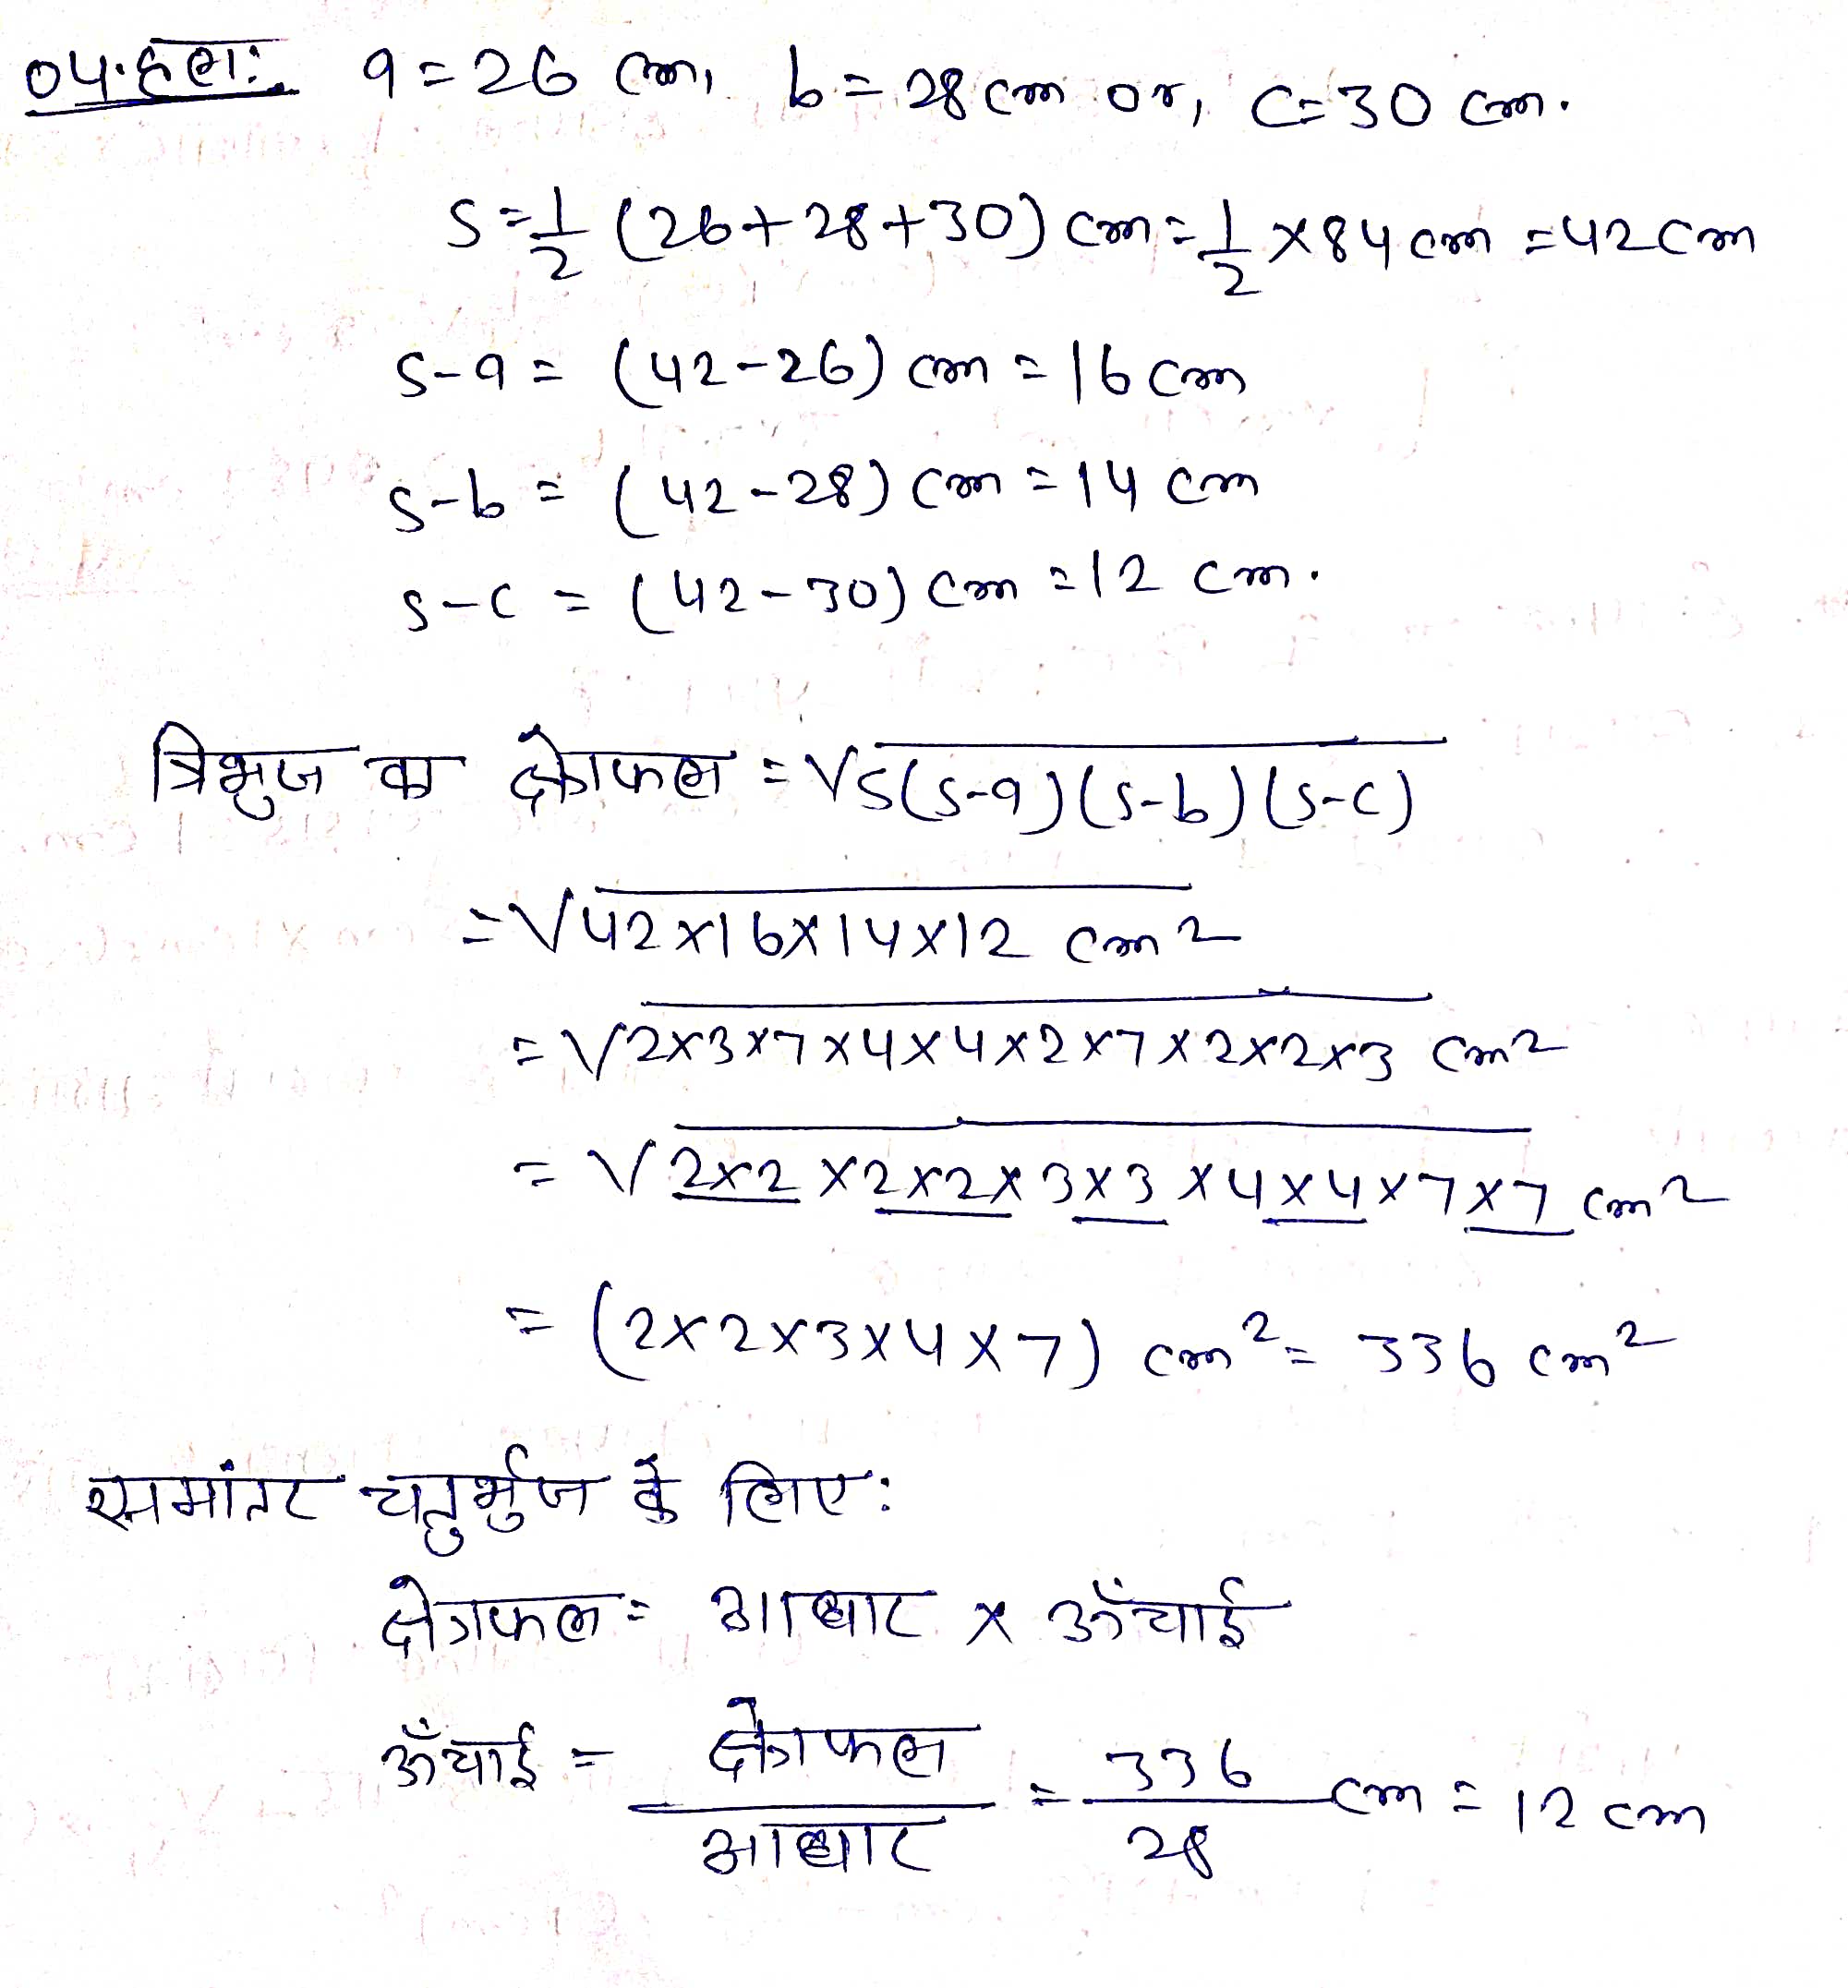 04. हल: a = 26 cm, b = 28 cm or, c = 30 cm.
s = 1/2 (26+28+30) cm = 1/2 × 84 cm = 42 cm
s-a = (42-26) cm = 16 cm
s-b = (42-28) cm = 14 cm
s-c = (42-30) cm = 12 cm.
त्रिभुज का क्षेत्रफल = √s(s-a)(s-b)(s-c)
= √42×16×14×12 cm²
= √2×3×7×4×4×2×7×2×2×3 cm²
= √2×2×2×2×3×3×4×4×7×7 cm²
= (2×2×3×4×7) cm² = 336 cm²
समांतर चतुर्भुज के लिए:
क्षेत्रफल = आधार × ऊँचाई
ऊँचाई = क्षेत्रफल/आधार = 336/28 cm = 12 cm